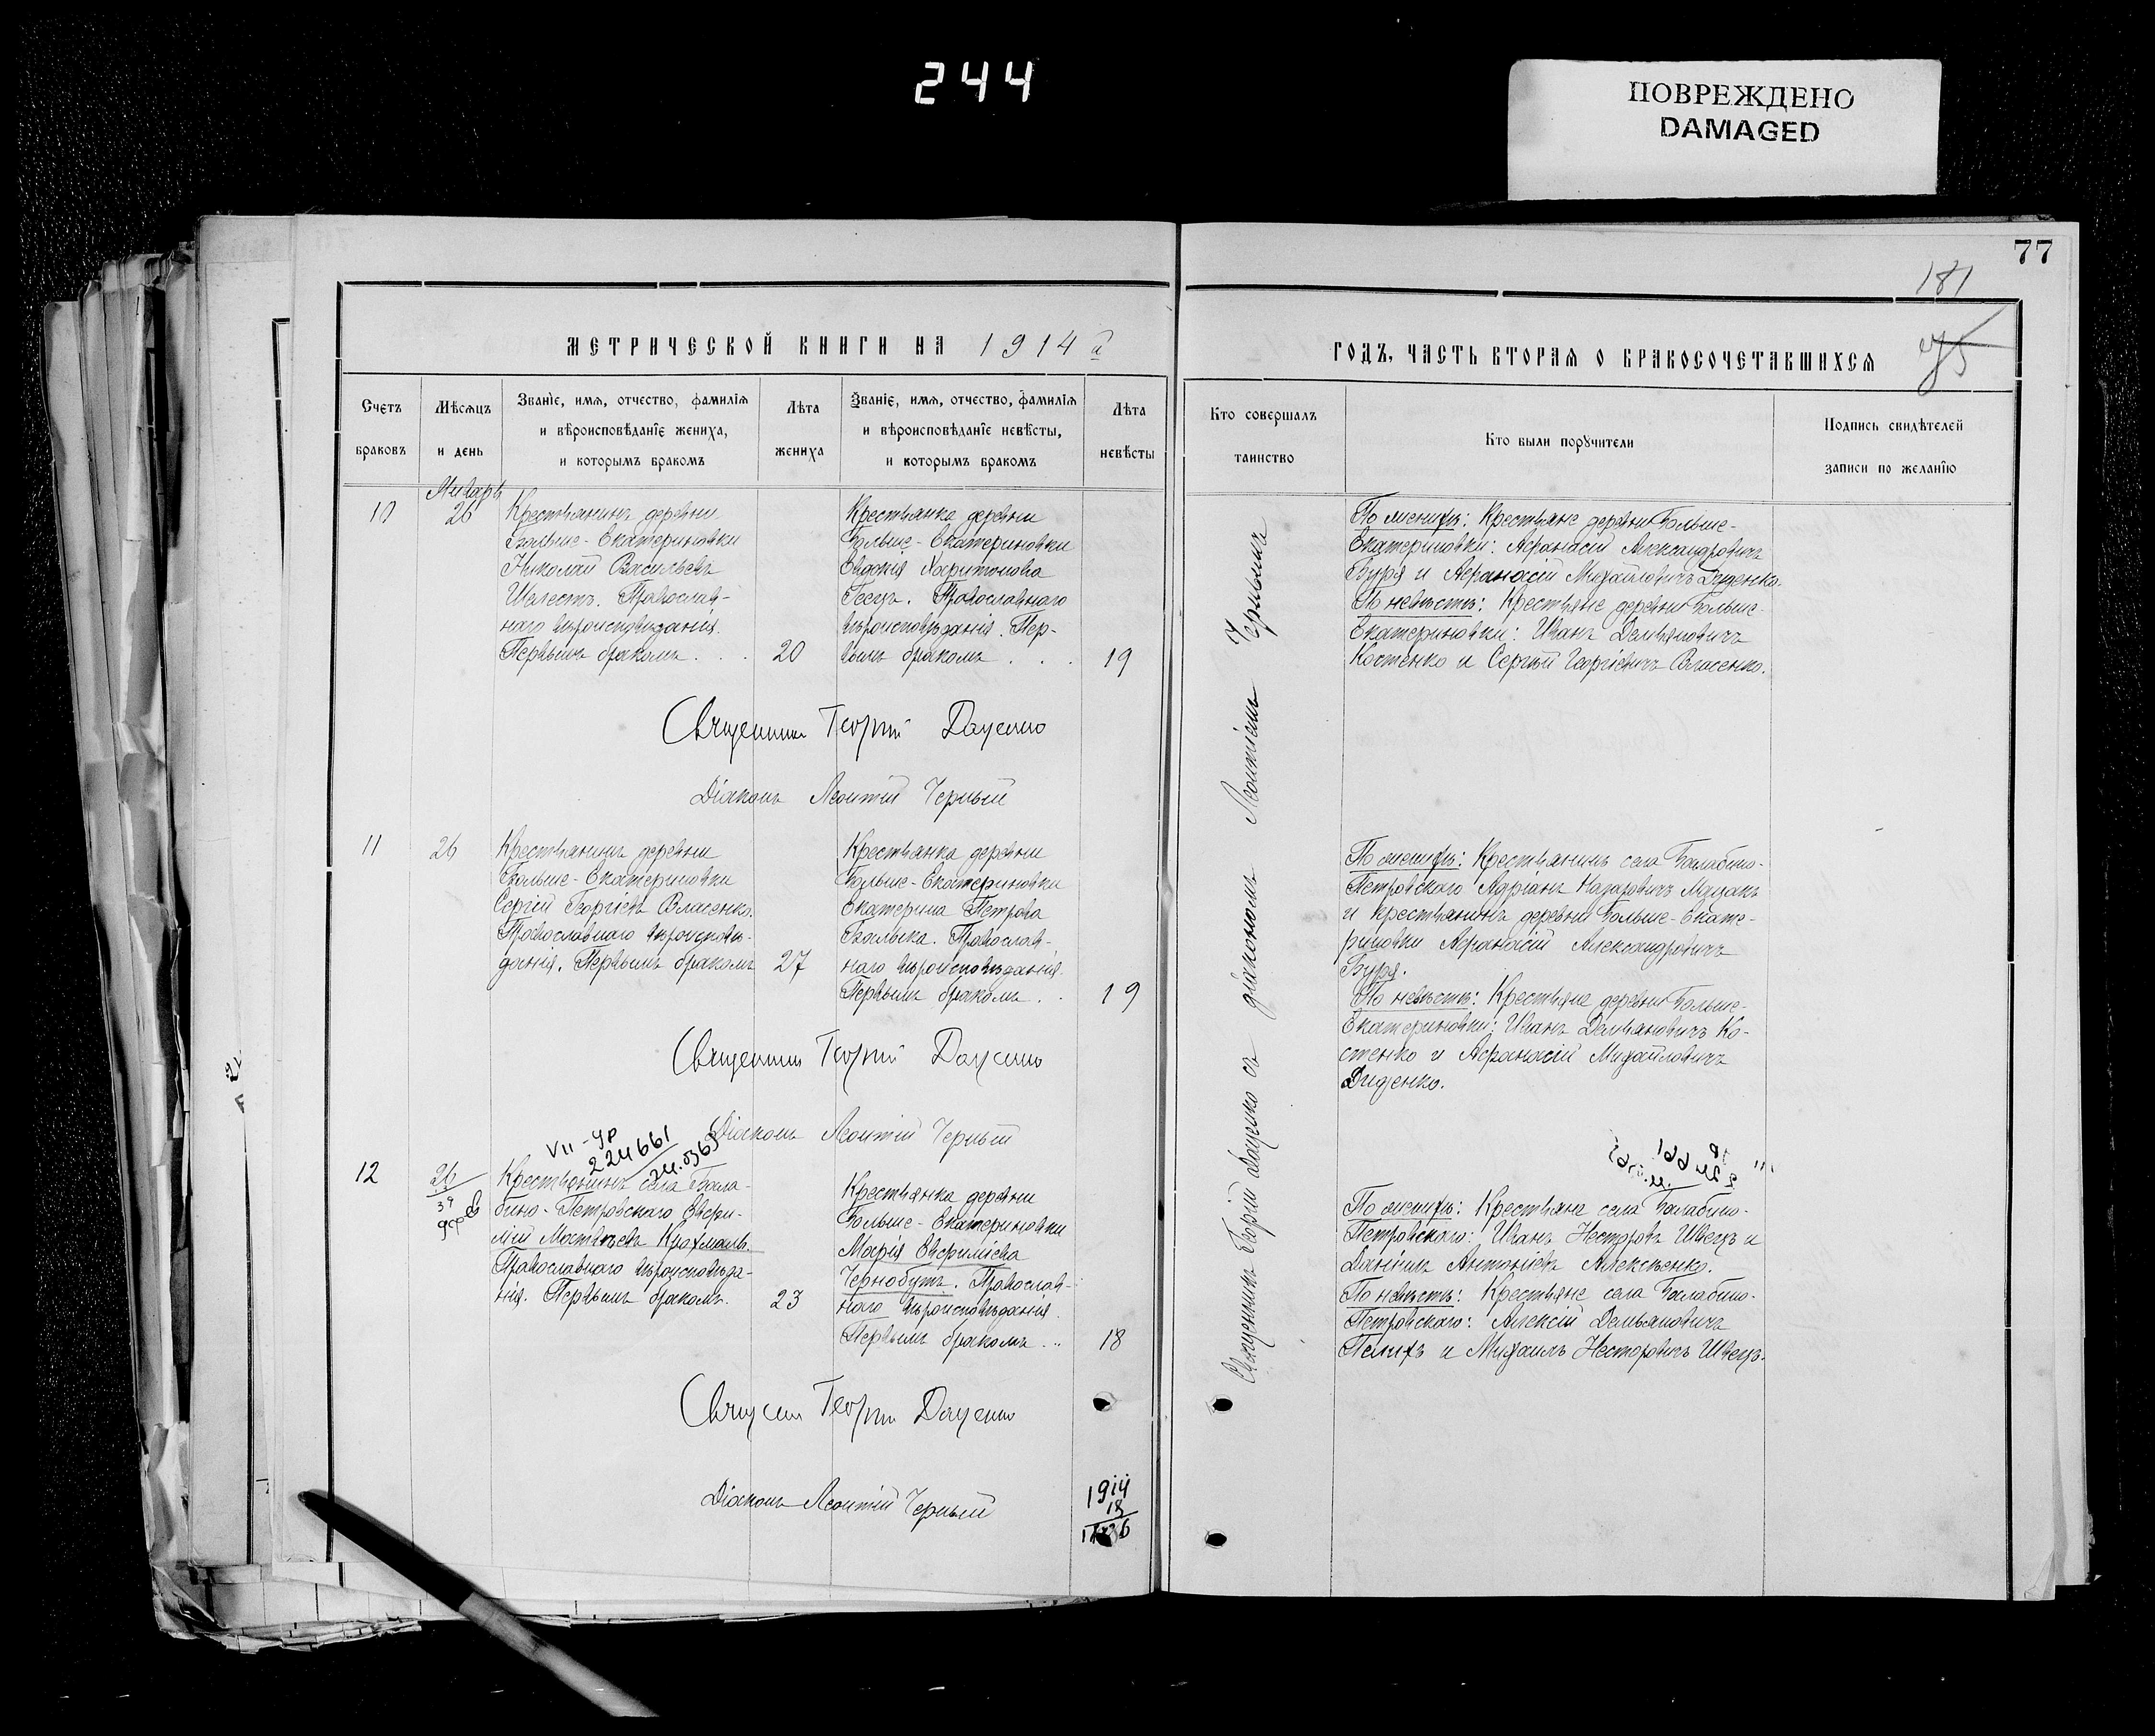 244
ПОВРЕЖДЕНО
DAMAGED
77
181
МЕТРИЧЕСКОЙ КНИГИ НА 1914 й
ГОДЪ, ЧАСТЬ ВТОРАЯ О БРАКОСОЧЕТАВШИХСЯ
Счетъ
браковъ
Мѣсяцъ
и день
Званіе, имя, отчество, фамилія
и вѣроисповѣданіе жениха,
и которымъ бракомъ
Лѣта
жениха
Званіе, имя, отчество, фамилія
и вѣроисповѣданіе невѣсты,
и которымъ бракомъ
Лѣта
невѣсты
Кто совершалъ
таинство
Кто были поручители
Подпись свидѣтелей
записи по желанію
Январь
10
26
Крестьянинъ деревни
Больше-Екатериновки
Николай Васильевъ
Шелестъ. Православ-
наго вѣроисповѣданія.
Первымъ бракомъ . . .
20
Крестьянка деревни
Больше-Екатериновки
Евдокія Харитонова
Православнаго
вѣроисповѣданія. Пер-
вымъ бракомъ . . .
19
Священникъ Георгій Даценко
Діаконъ Леонтій Черный
11
26
Крестьянинъ деревни
Больше-Екатериновки
Сергій Георгіевъ Власенко.
Православнаго вѣроисповѣ-
данія. Первымъ бракомъ
27
Крестьянка деревни
Больше-Екатериновки
Екатерина Петрова
Православ-
наго вѣроисповѣданія.
Первымъ бракомъ . .
19
Священникъ Георгій Даценко
Діаконъ Леонтій Черный
VII-УР
224661
12
26
Крестьянинъ села Бала-
бино-Петровскаго Евфи-
мій Матвѣевъ Крохмаль.
Православнаго вѣроисповѣда-
нія. Первымъ бракомъ.
23
Крестьянка деревни
Больше-Екатериновки
Марія Евфиміева
Чернобутъ. Православ-
наго вѣроисповѣданія.
Первымъ бракомъ . .
18
Священникъ Георгій Даценко
Діаконъ Леонтій Черный
1914
18
Священникъ Георгій Даценко съ діакономъ Леонтіемъ Чернымъ
По женихѣ: Крестьяне деревни Больше-
Екатериновки: Афанасій Александровичъ
Буря и Афанасій Михайловичъ Диденко.
По невѣстѣ: Крестьяне деревни Больше-
Екатериновки: Иванъ Демьяновичъ
Костенко и Сергѣй Георгіевичъ Власенко.
По женихѣ: Крестьянинъ села Балабино-
Петровскаго Адріанъ Назаровичъ
и крестьянинъ деревни Больше-Екате-
риновки Афанасій Александровичъ
Буря.
По невѣстѣ: Крестьяне деревни Больше-
Екатериновки: Иванъ Демьяновичъ Ко-
стенко и Афанасій Михайловичъ
Диденко.
По женихѣ: Крестьяне села Балабино-
Петровскаго: Иванъ Несторовъ Швецъ и
Даніилъ Антоніевъ Алексѣенко.
По невѣстѣ: Крестьяне села Балабино-
Петровскаго: Алексій Демьяновичъ
и Михаилъ Несторовичъ Швецъ.